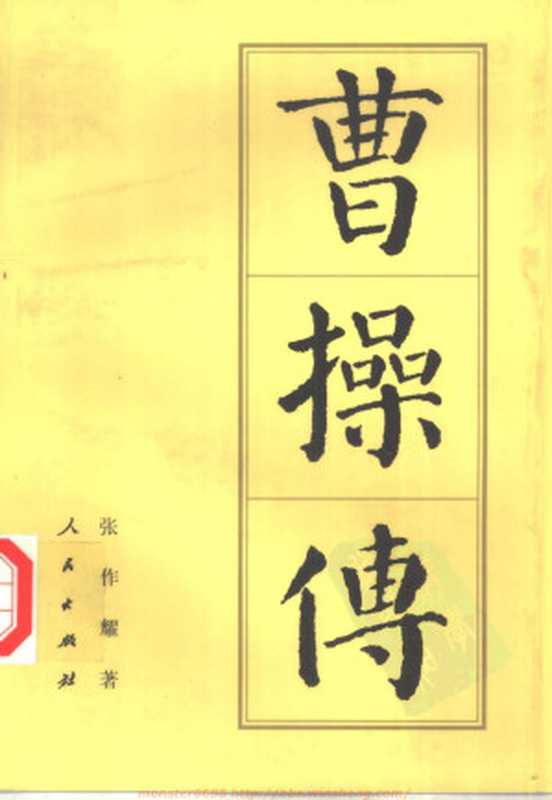 曹操傳
张作耀著
人民出版社